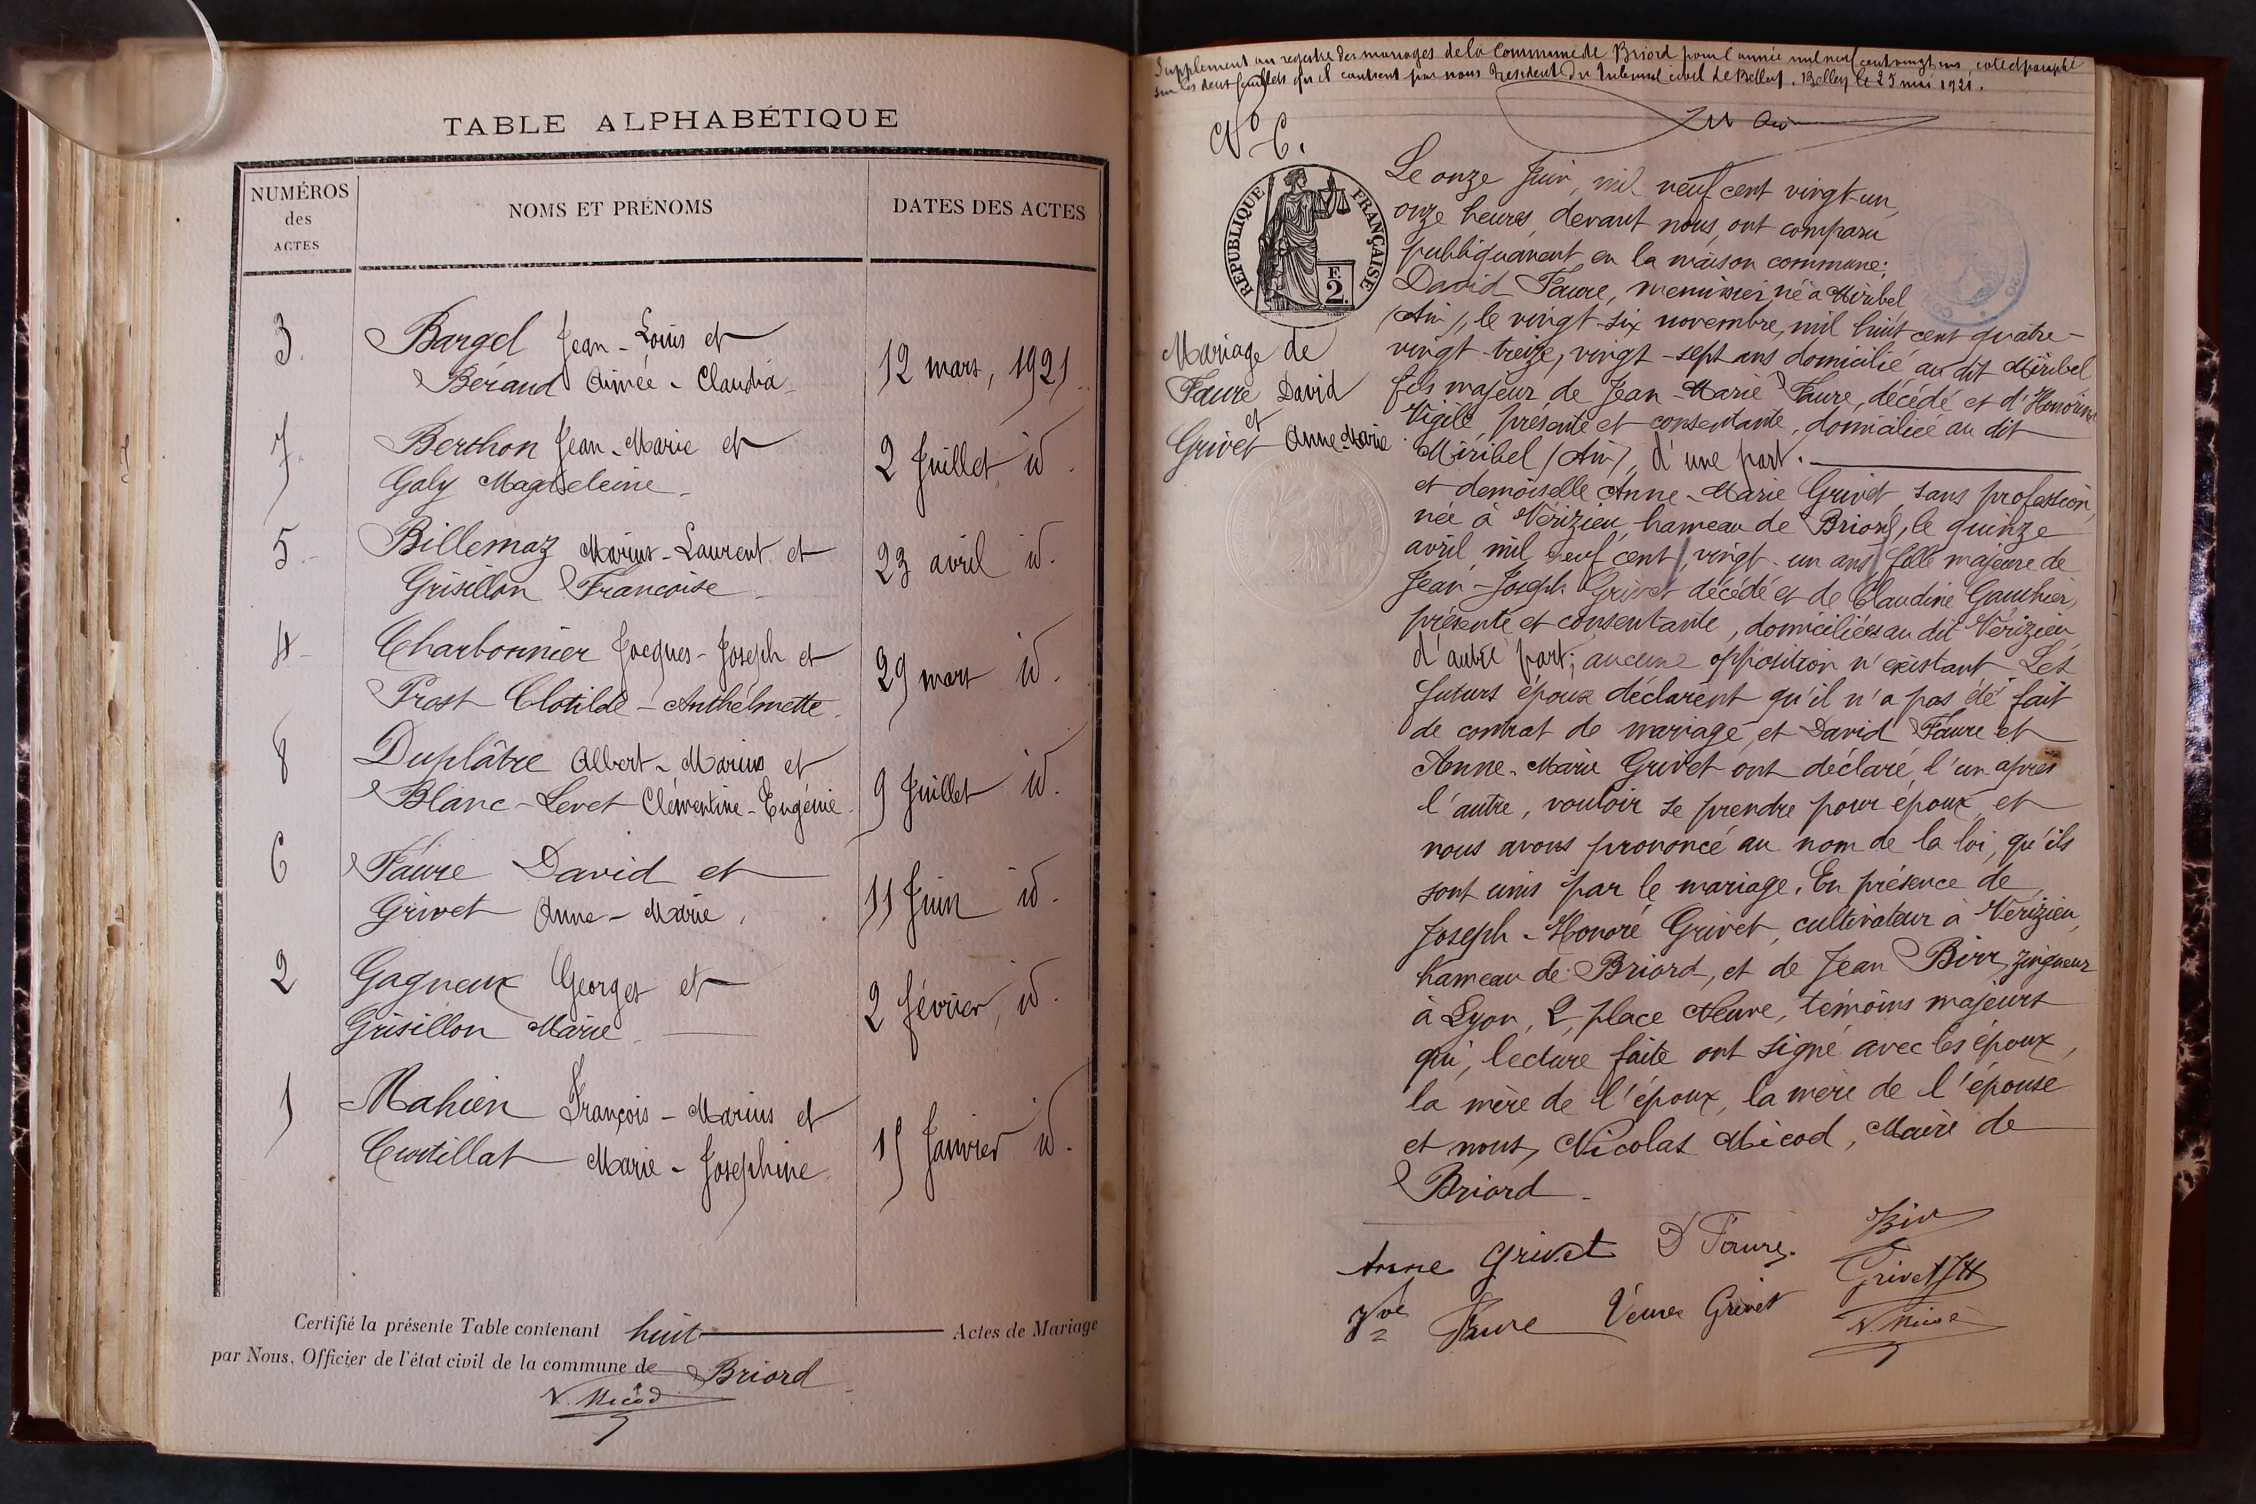 TABLE ALPHABÉTIQUE
NUMÉROS des ACTES
NOMS ET PRÉNOMS
DATES DES ACTES
3.
Bargel Jean-Louis et
Béraud Aimée-Claudia
12 mars, 1921
7.
Berthon Jean-Marie et
Galy Magdeleine
2 Juillet id.
5.
Billemaz Marius-Laurent et
Grisillon Françoise
23 avril id.
4
Charbonnier Jacques-Joseph et
Prost Clotilde-Anthélmette
29 mars id.
8
Duplâtre Albert-Marius et
Blanc-Levet Clémentine-Eugénie
9 Juillet id.
6
Faure David et
Grivet Anne-Marie
11 Juin id.
2
Gagneux Georges et
Grisillon Marie
2 février, id.
1
Mahien François-Marius et
Curtillat Marie-Josephine
15 Janvier id.
Certifié la présente Table contenant huit Actes de Mariage
par Nous, Officier de l'état civil de la commune de Briord
N. Micod
Supplement au registre des mariages de la Commune de Briord pour l'année mil neuf cent vingt un, coté et paraphé
sur les deux feuillets qu'il contient par nous Président du Tribunal civil de Belley. Belley le 25 mai 1921.
No 6.
RÉPUBLIQUE FRANÇAISE
F.
2.
Mariage de
Faure David
et
Grivet Anne Marie
Le onze Juin, mil neuf cent vingt-un,
onze heures, devant nous, ont comparu
publiquement en la maison commune:
David Faure, menuisier, né à Miribel
(Ain), le vingt-six novembre, mil huit cent quatre-
vingt-treize, vingt-sept ans domicilié au dit Miribel
fils majeur de Jean-Marie Faure, décédé et d'Honorine
Vigile, présente et consentante, domiciliée au dit
Miribel (Ain), d'une part.
et demoiselle Anne-Marie Grivet, sans profession,
née à Vérizieu, hameau de Briord, le quinze
avril mil neuf cent, vingt-un ans, fille majeure de
Jean-Joseph Grivet décédé et de Claudine Gauthier,
présente et consentante, domiciliées au dit Vérizieu,
d'autre part; aucune opposition n'existant Les
futurs époux déclarent qu'il n'a pas été fait
de contrat de mariage, et David Faure et
Anne-Marie Grivet ont déclaré, l'un après
l'autre, vouloir se prendre pour époux, et
nous avons prononcé au nom de la loi, qu'ils
sont unis par le mariage. En présence de
Joseph-Honoré Grivet, cultivateur à Vérizieu,
hameau de Briord, et de Jean Birr, zingueur
à Lyon, 2, place Neuve, témoins majeurs
qui, lecture faite ont signé avec les époux,
la mère de l'époux, la mère de l'épouse
et nous, Nicolas Micod, Maire de
Briord
Anne Grivet D Faure. Birr
Vve Faure Veuve Grivet Grivet JH
N. Micod